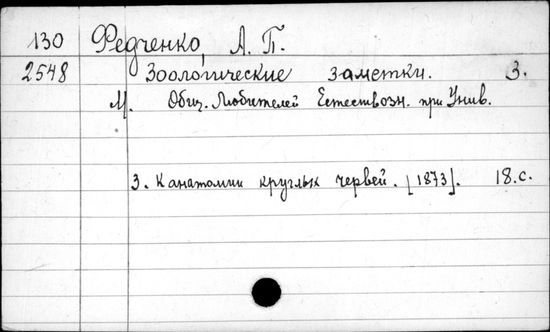 130 Федченко, А. П.
2548 Зоологические заметки. 3.
М. Общ. Любителей Естествозн. при Унив.
3. К анатомии круглых червей. [1873]. 18.с.